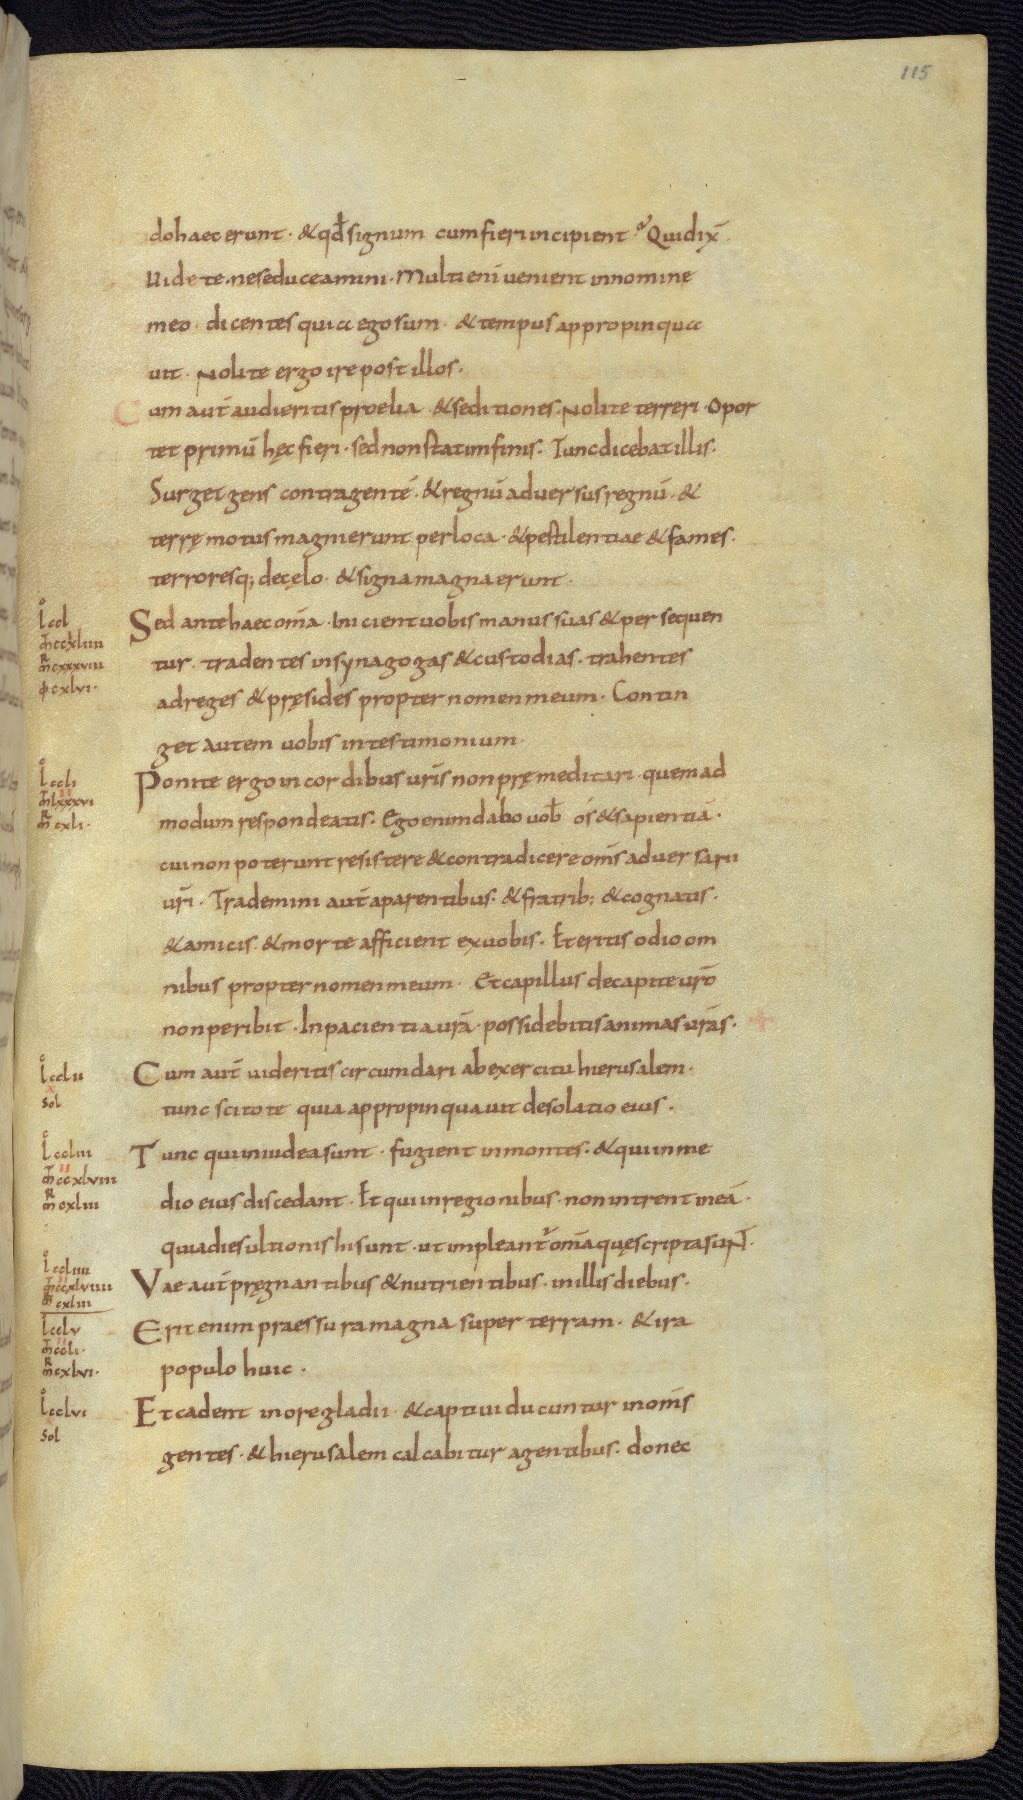 115
do haec erunt · & qđ signum cum fieri incipient · Qui dix̄
Uidete · ne seducamini · Multi eni uenient in nomine
meo · dicentes quia ego sum · & tempus appropinqua
uit · Nolite ergo ire post illos ·
Cum aut̄ audieritis proelia · & seditiones · Nolite terreri · Opor
tet primū hęc fieri · sed non statim finis · Tunc dicebat illis ·
Surget gens contra gentē · & regnū aduersus regnū · &
terrę motus magni erunt per loca · & pestilentiae & fames ·
terroresq; de cęlo · & signa magna erunt ·
l ccl
Sed ante haec om̄a · Inicient uobis manus suas & persequen
m̄ ccxliiii
m̄ cxxxviii
tur · tradentes in synagogas & custodias · trahentes
cxlvi ·
ad reges & pręsides propter nomen meum · Contin
get autem uobis in testimonium ·
l ccli
Ponite ergo in cordibus ur̄is non pręmeditari · quemad
m̄ lxxxvi
m̄ cxli ·
modum respondeatis · Ego enim dabo uob̄ ós & sapientiā ·
cui non poterunt resistere & contradicere om̄s aduersarii
ur̄i · Trademini aut̄ a parentibus · & fratrib; & cognatis ·
& amicis · & morte afficient ex uobis · Et eritis odio om
nibus propter nomen meum · Et capillus de capite ur̄o
non peribit · In pacientia ur̄a · possidebitis animas ur̄as ·
l cclii
Cum aut̄ uideritis circumdari ab exercitu hierusalem ·
sol
tunc scitote quia appropinquauit desolatio eius ·
l ccliii
Tunc qui in iudea sunt · fugient in montes · & qui in me
m̄ ccxlviii
m̄ cxliii
dio eius discedant · Et qui in regionibus · non intrent in eā ·
quia dies ultionis hi sunt · ut impleant̄ om̄a quę scripta sunt ·
l ccliiii
Vae aut̄ pręgnantibus & nutrientibus · in illis diebus ·
m̄ ccxlviiii
m̄ cxliii
l cclv
Erit enim praessura magna super terram · & ira
m̄ ccli ·
m̄ cxlvi ·
populo huic ·
l cclvi
Et cadent in ore gladii · & captiui ducuntur in om̄s
sol
gentes · & hierusalem calcabitur a gentibus · donec